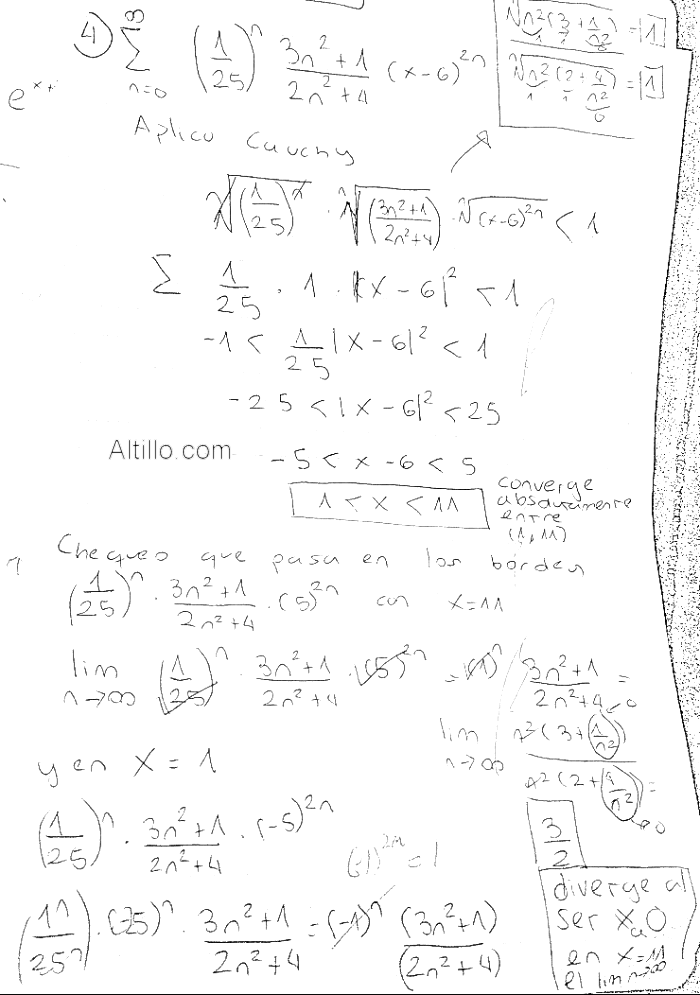 4) ∞ Σ n=0 (1/25)^n (3n²+1)/(2n²+4) (x-6)^2n
ⁿ√n²(3+1/n²) = 1
ⁿ√n²(2+4/n²) = 1
e^x+
Aplico Cauchy
ⁿ√(1/25)^n · ⁿ√((3n²+1)/(2n²+4)) · ⁿ√(x-6)^2n < 1
Σ 1/25 · 1 · |x - 6|² < 1
-1 < 1/25 |x - 6|² < 1
-25 < |x - 6|² < 25
Altillo.com
-5 < x - 6 < 5
1 < x < 11
converge
absolutamente
entre
(1, 11)
Chequeo que pasa en los bordes
(1/25)^n · (3n²+1)/(2n²+4) · (5)^2n con x=11
lim n→∞ (1/25)^n · (3n²+1)/(2n²+4) · (5)^2n = (1)^n (3n²+1)/(2n²+4) =
lim n→∞ n²(3+1/n²)/n²(2+4/n²) =
→0
→0
3/2
y en x = 1
(1/25)^n · (3n²+1)/(2n²+4) · (-5)^2n
(-1)^2n = 1
(1^n/25^n) · (-25)^n · (3n²+1)/(2n²+4) = (-1)^n (3n²+1)/(2n²+4)
diverge al
ser
en x=11
el lim n→∞